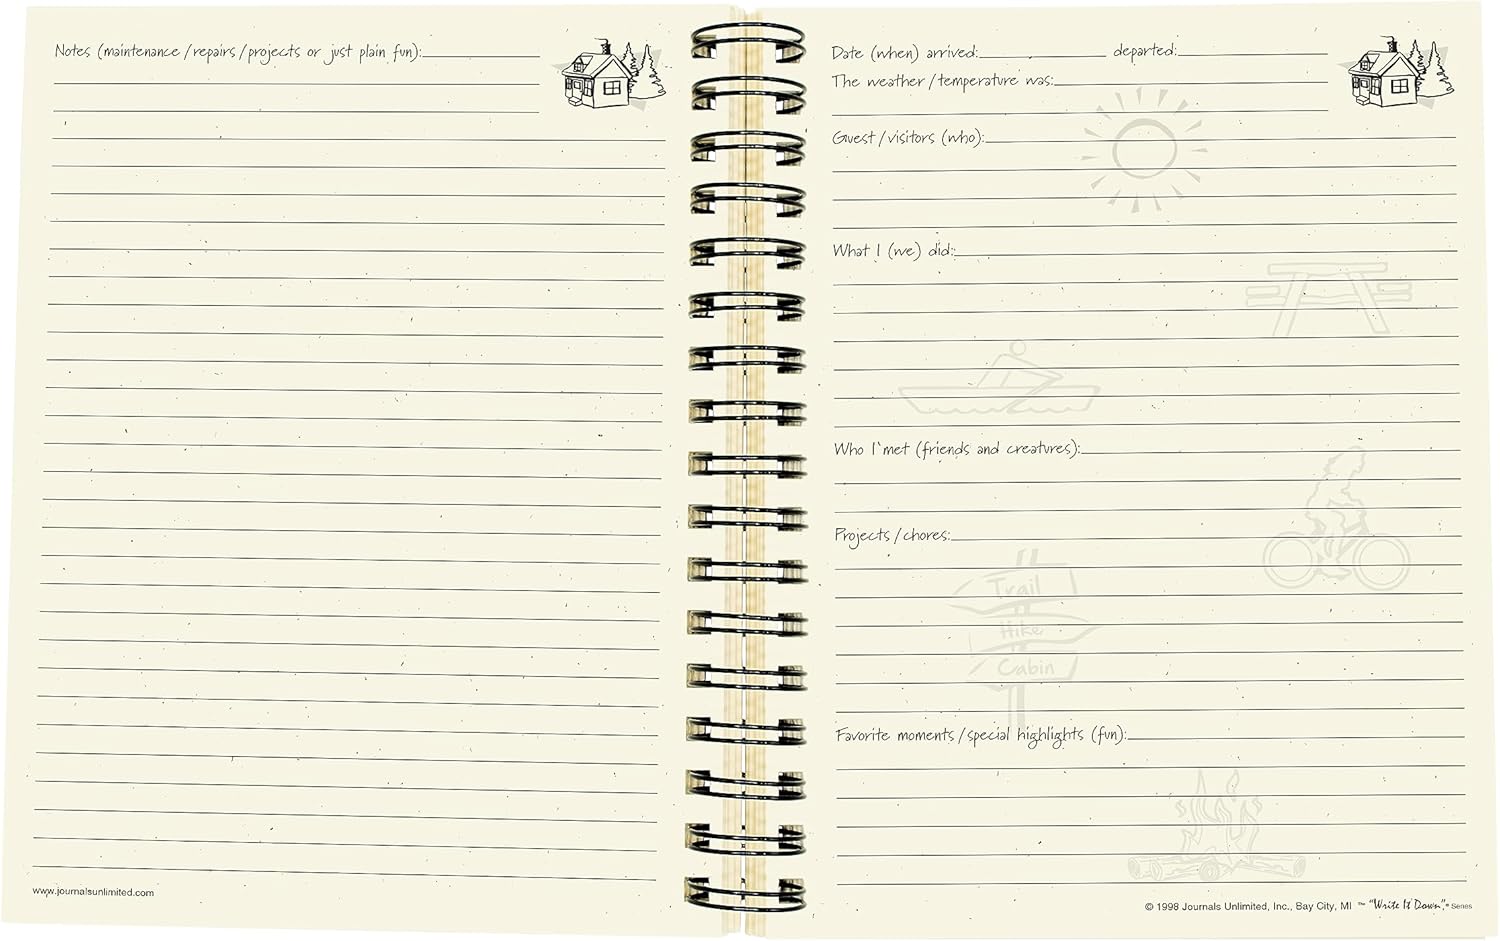 Notes (maintenance/repairs/projects or just plain fun):
www.journalsunlimited.com
Date (when) arrived: departed:
The weather/temperature was:
Guest/visitors (who):
What I (we) did:
Who I met (friends and creatures):
Projects/chores:
Trail
Hike
Cabin
Favorite moments/special highlights (fun):
© 1998 Journals Unlimited, Inc., Bay City, MI ™ "Write It Down"® Series